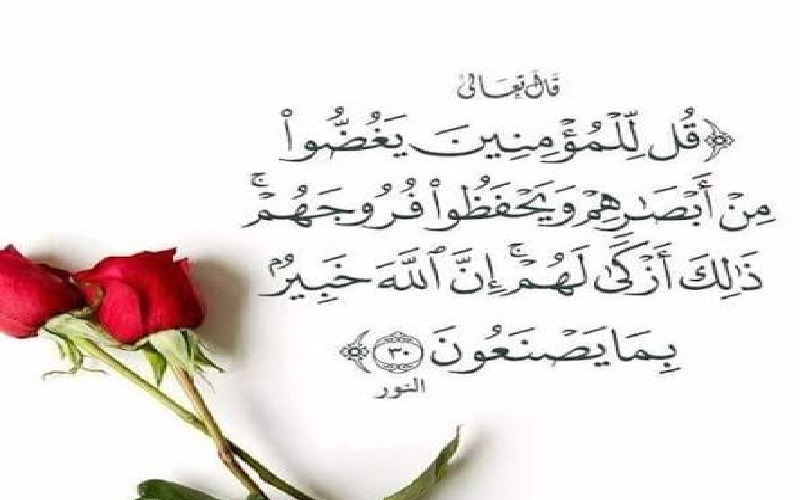 قال تعالى
﴿قُل لِّلْمُؤْمِنِينَ يَغُضُّوا۟
مِنْ أَبْصَٰرِهِمْ وَيَحْفَظُوا۟ فُرُوجَهُمْ ۚ
ذَٰلِكَ أَزْكَىٰ لَهُمْ ۗ إِنَّ ٱللَّهَ خَبِيرٌۢ
بِمَا يَصْنَعُونَ ٣٠﴾
النور